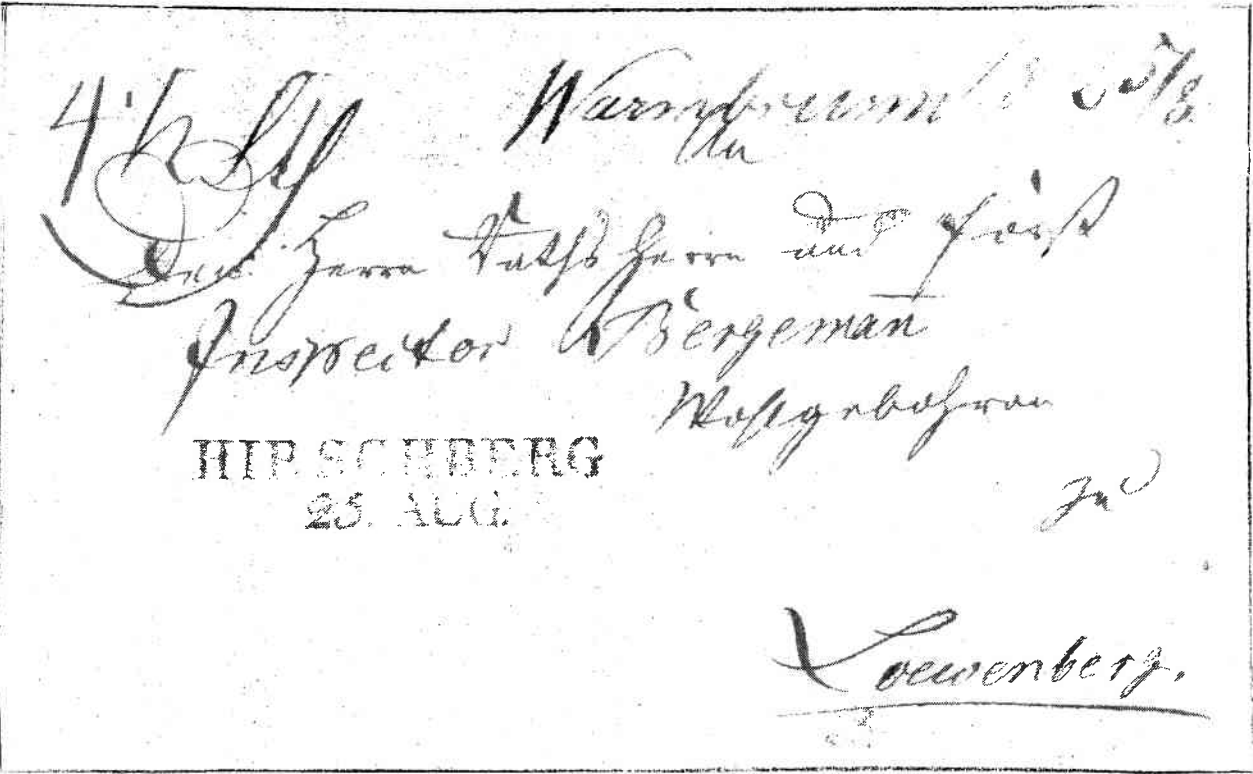 Warmbrunn d 25/8.
An
Den Herrn Rathsherrn und Forst
Inspector Bergeman̄
Wohlgebohren
HIRSCHBERG
25. AUG.
zu
Loewenberg.